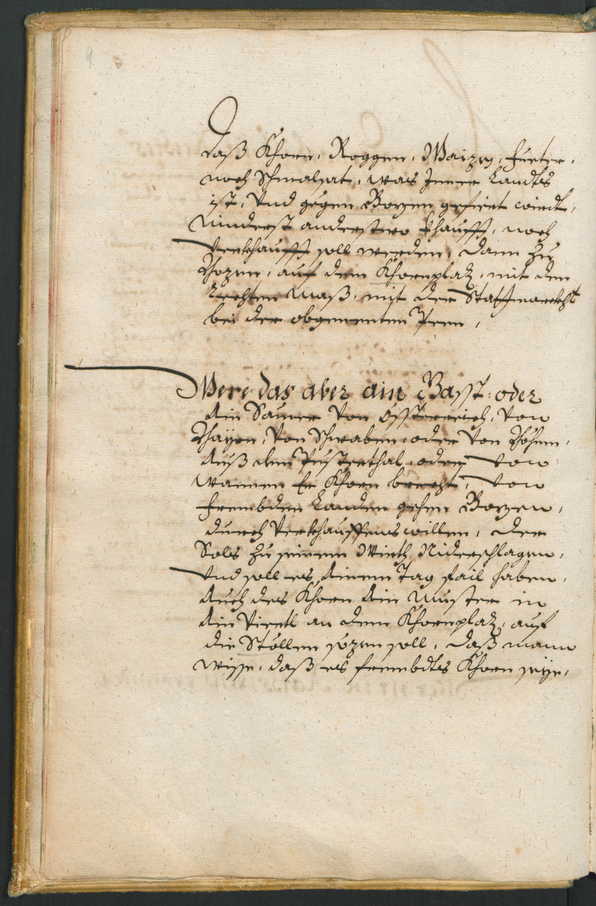 9
Daß Khorn, Roggen, Waizen, Fueter,
noch Schmalsat, was Inner Landts
ist, Vnd gegen Bozen gefüert wirdt,
Ninderst anderstwo khaufft, noch
Verkhaufft soll werden, dann zu
Bozen, auf dem Khornplaz, mit dem
rechten Maß, mit der Statt
bei der obgemelten Peen,
Were das aber ain Gasst oder
Ain Sämer von Össterreich, Von
Bayrn, Von Schwaben, oder Von
Auß dem Pusterthal, oder Von
Wannen Er Khorn brecht, Von
frembden Landen gehen Bozen,
durch Verkhauffens willen, Der
Sols zu seinem Wirth Niderschlagen,
Vnd soll es Ainem Tag fail haben,
Auch des Khorn Ain Muster in
Ain Viertl an dem Khornplaz, auf
die Stöllen sözen soll, daß mann
Wisse, daß es frembdts Khorn seye,